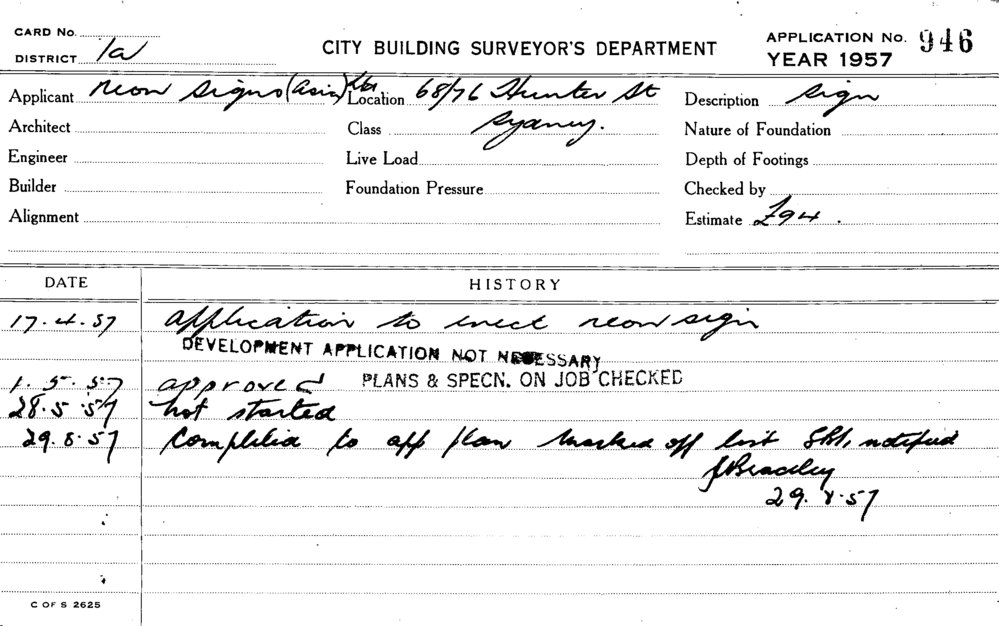 CARD No.
DISTRICT 1a
CITY BUILDING SURVEYOR'S DEPARTMENT
APPLICATION No. 946
YEAR 1957
Applicant neon signs (asia) Ltd Location 68/76 Hunter St Description sign
Architect Class Sydney. Nature of Foundation
Engineer Live Load Depth of Footings
Builder Foundation Pressure Checked by
Alignment Estimate £94.
DATE HISTORY
17.4.57 application to erect neon sign
DEVELOPMENT APPLICATION NOT NECESSARY
1.5.57 approved PLANS & SPECN. ON JOB CHECKED
28.5.57 not started
29.8.57 Completed to app plan marked off list notified
29.8.57
C OF S 2625